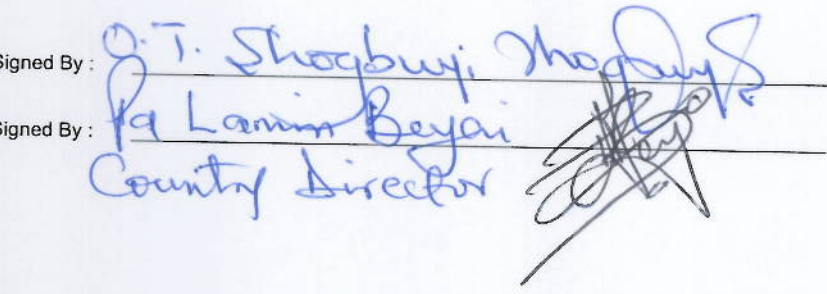 Signed By : O. T. Shogbuyi Shogbuyi
Signed By : Pa Lamin Beyai
Country Director